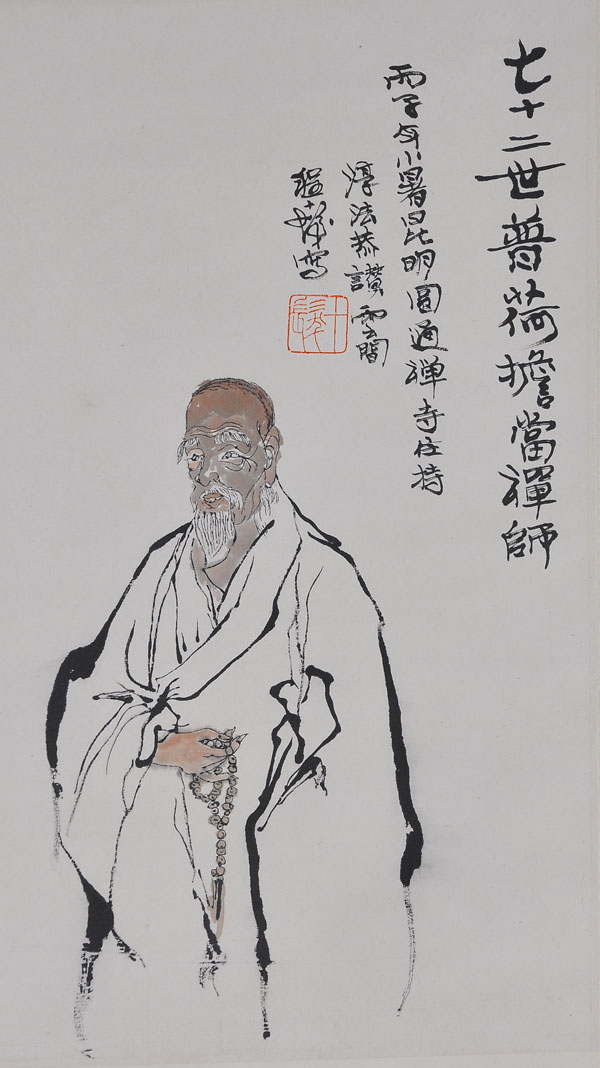 七十二世普荷擔當禅師
丙子年小暑昆明圓通禅寺住持
淳法恭讚雲間
程十髮寫
十髮